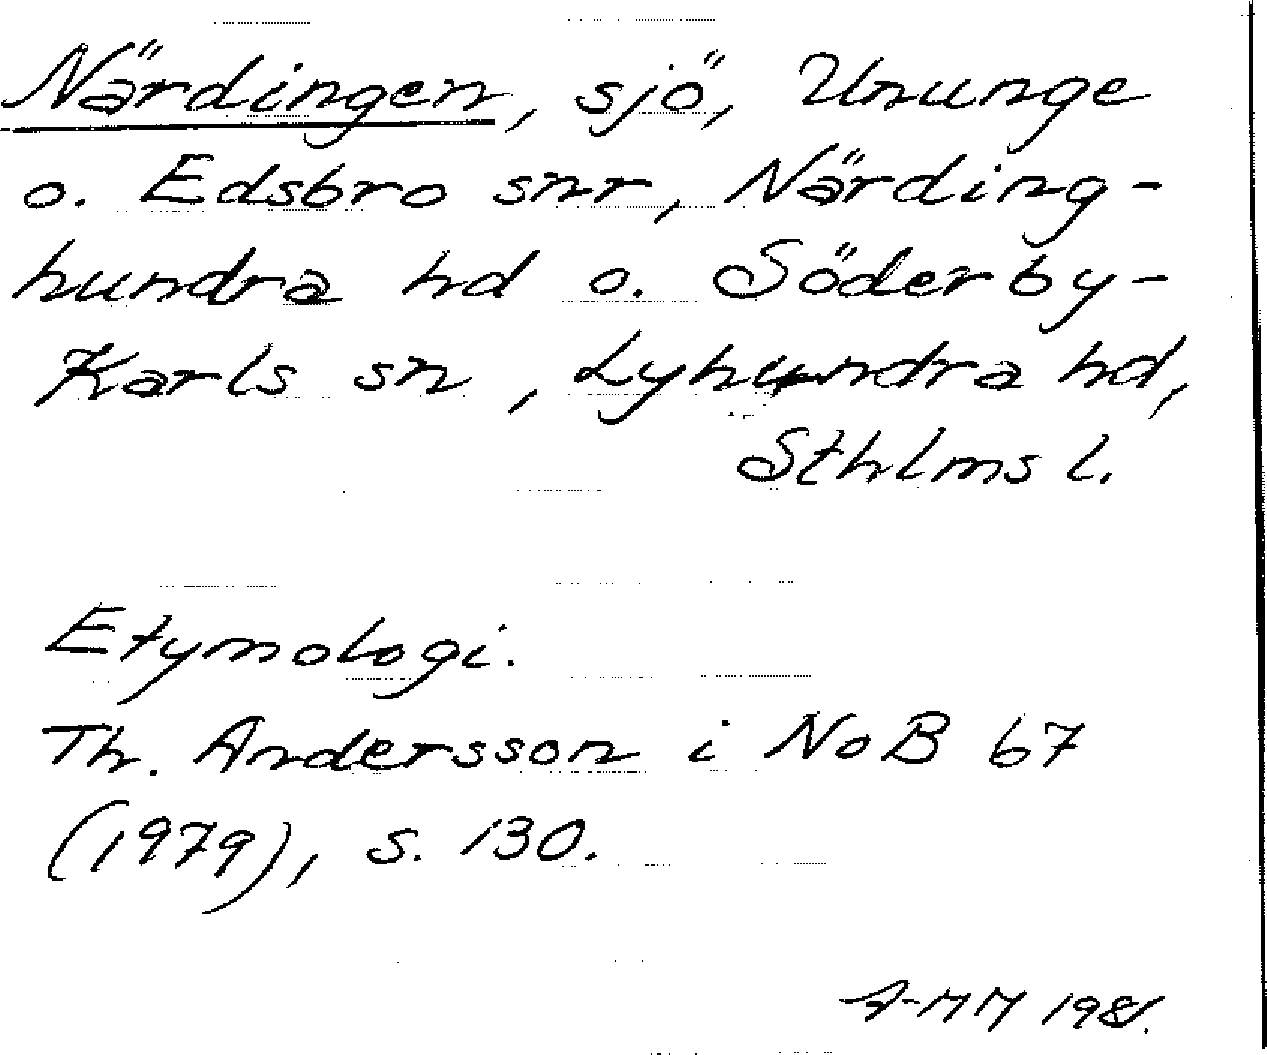 Närdingen, sjö, Ununge
o. Edsbro snr, Närding-
hundra hd o. Söderby-
Karls sn, Lyhundra hd,
Sthlms l.
Etymologi.
Th. Andersson i NoB 67
(1979), s. 130.
A-MM 1981.